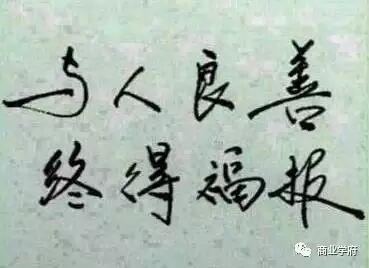 与人良善
终得福报
商业学府